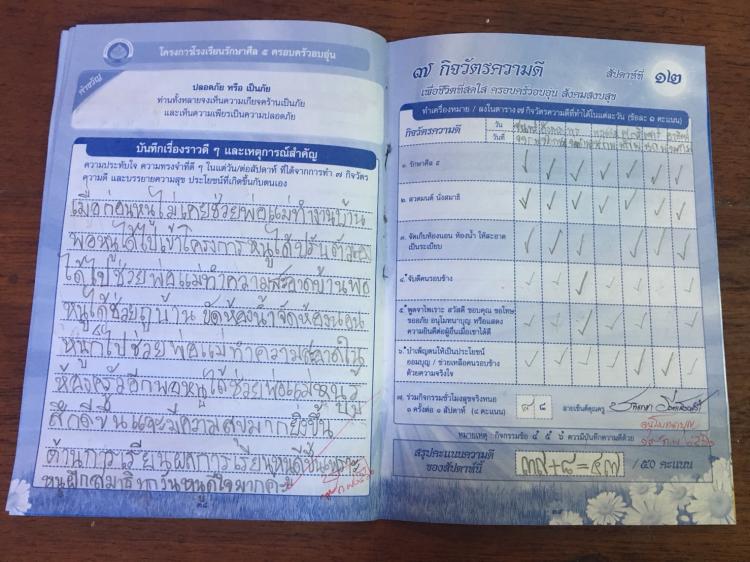 โครงการโรงเรียนรักษาศีล ๕ ครอบครัวอบอุ่น
คำขวัญ
ปลอดภัย หรือ เป็นภัย
ท่านทั้งหลายจงเห็นความเกียจคร้านเป็นภัย
และเห็นความเพียรเป็นความปลอดภัย
บันทึกเรื่องราวดี ๆ และเหตุการณ์สำคัญ
ความประทับใจ ความทรงจำที่ดี ๆ ในแต่ละวัน/ต่อสัปดาห์ ที่ได้จากการทำ ๗ กิจวัตร
ความดี และบรรยายความสุข ประโยชน์ที่เกิดขึ้นกับตนเอง
เมื่อก่อนหนูไม่เคยช่วยพ่อแม่ทำงานบ้าน
พอหนูได้ไปเข้าโครงการหนูได้ปรับตัว
ได้ไปช่วยพ่อแม่ทำความสะอาดบ้านพอ
หนูได้ช่วยถูบ้าน ขัดห้องน้ำจัดห้องนอน
หนูก็ไปช่วยพ่อแม่ทำความสะอาดใน
ห้องครัวอีกพอหนูได้ช่วยพ่อแม่หนูรู้
สึกดีขึ้นและมีความสุขมากยิ่งขึ้น
ด้านการเรียนผลการเรียนหนูดีขึ้น
หนูฝึกสมาธิทุกวันหนูดีใจมากค่ะ
๓๘
๗ กิจวัตรความดี
สัปดาห์ที่ ๑๒
เพื่อชีวิตที่สดใส ครอบครัวอบอุ่น สังคมสงบสุข
ทำเครื่องหมาย / ลงในตาราง ๗ กิจวัตรความดีที่ทำได้ในแต่ละวัน (ข้อละ ๑ คะแนน)
กิจวัตรความดี
วัน
วันที่
๑. รักษาศีล ๕
๒. สวดมนต์ นั่งสมาธิ
๓. จัดเก็บห้องนอน ห้องน้ำ ให้สะอาด
เป็นระเบียบ
๔. จับดีคนรอบข้าง
๕. พูดจาไพเราะ สวัสดี ขอบคุณ ขอโทษ
ขออภัย อนุโมทนาบุญ หรือแสดง
ความยินดีต่อผู้อื่นเมื่อเขาได้ดี
๖. บำเพ็ญตนให้เป็นประโยชน์
ออมบุญ / ช่วยเหลือคนรอบข้าง
ด้วยความจริงใจ
๗. ร่วมกิจกรรมชั่วโมงสุขจริงหนอ
๑ ครั้งต่อ ๑ สัปดาห์ (๘ คะแนน)
๘
ลายเซ็นต์คุณครู
อนุโมทนาบุญ
หมายเหตุ : กิจกรรมข้อ ๔ ๕ ๖ ควรมีบันทึกความดีด้วย
สรุปคะแนนความดี
ของสัปดาห์นี้
๓๙+๘=๔๗
/ ๕๐ คะแนน
๓๙